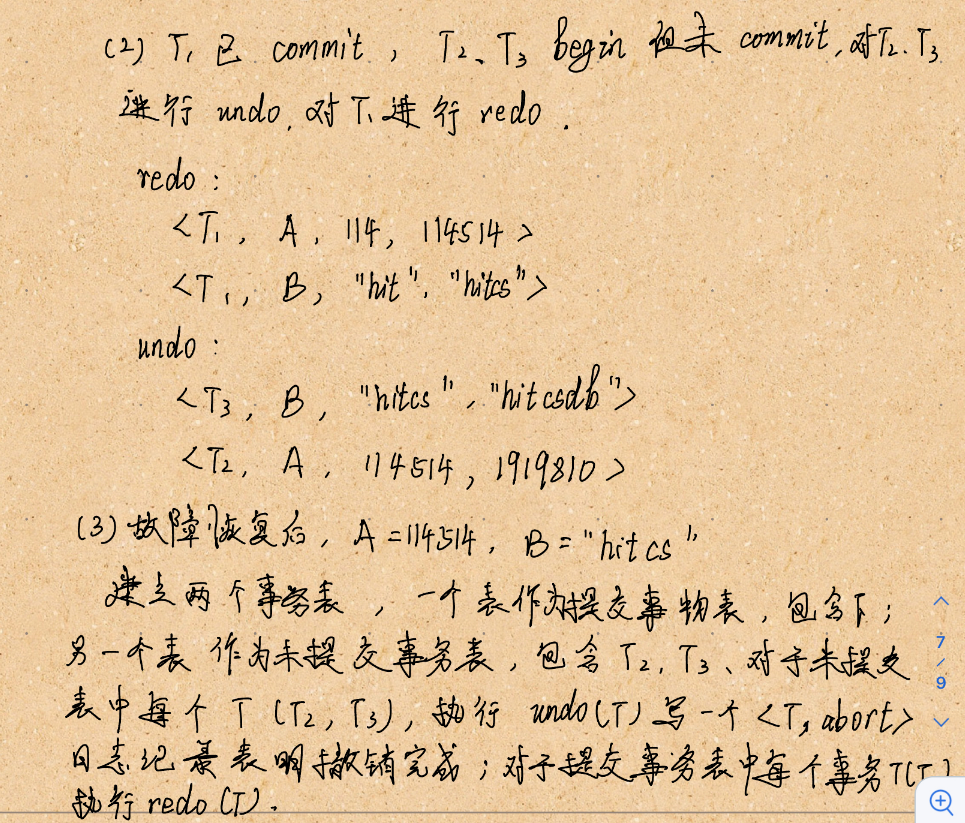 (2) T₁ 已 commit , T₂、T₃ begin 但未 commit, 对T₂、T₃
进行 undo, 对 T₁ 进行 redo .
redo :
<T₁, A, 114, 114514 >
<T₁, B, "hit", "hitcs">
undo :
<T₃, B, "hitcs", "hitcsdb">
<T₂, A, 114514, 1919810 >
(3) 故障恢复后, A=114514, B="hitcs"
建立两个事务表, 一个表作为提交事物表, 包含T₁;
另一个表 作为未提交事务表, 包含 T₂, T₃、对于未提交
表中每个 T (T₂, T₃), 执行 undo(T) 写一个 <T, abort>
日志记录表明撤销完成; 对于提交事务表中每个事务T(T₁)
执行 redo (T).
7
/
9